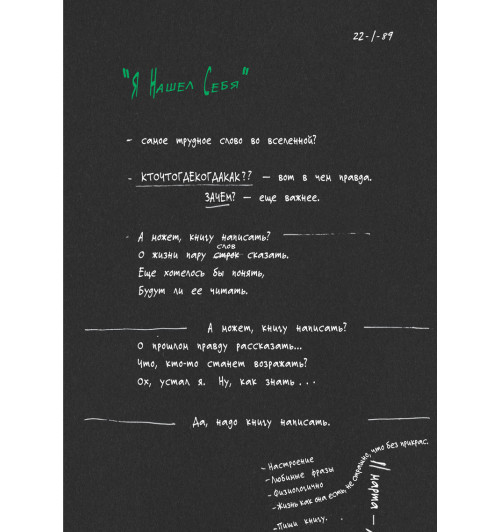 22-1-89
"Я Нашел Себя"
- самое трудное слово во вселенной?
- КТОЧТОГДЕКОГДАКАК?? — вот в чем правда.
ЗАЧЕМ? — еще важнее.
- А может, книгу написать?
слов
О жизни пару строк сказать.
Еще хотелось бы понять,
Будут ли ее читать.
А может, книгу написать?
О прошлом правду рассказать...
Что, кто-то станет возражать?
Ох, устал я. Ну, как знать...
Да, надо книгу написать.
- Настроение
- Любимые фразы
- Физиологично
- Жизнь как она есть, не страшно, что без прикрас.
- Пиши книгу.
11 марта -